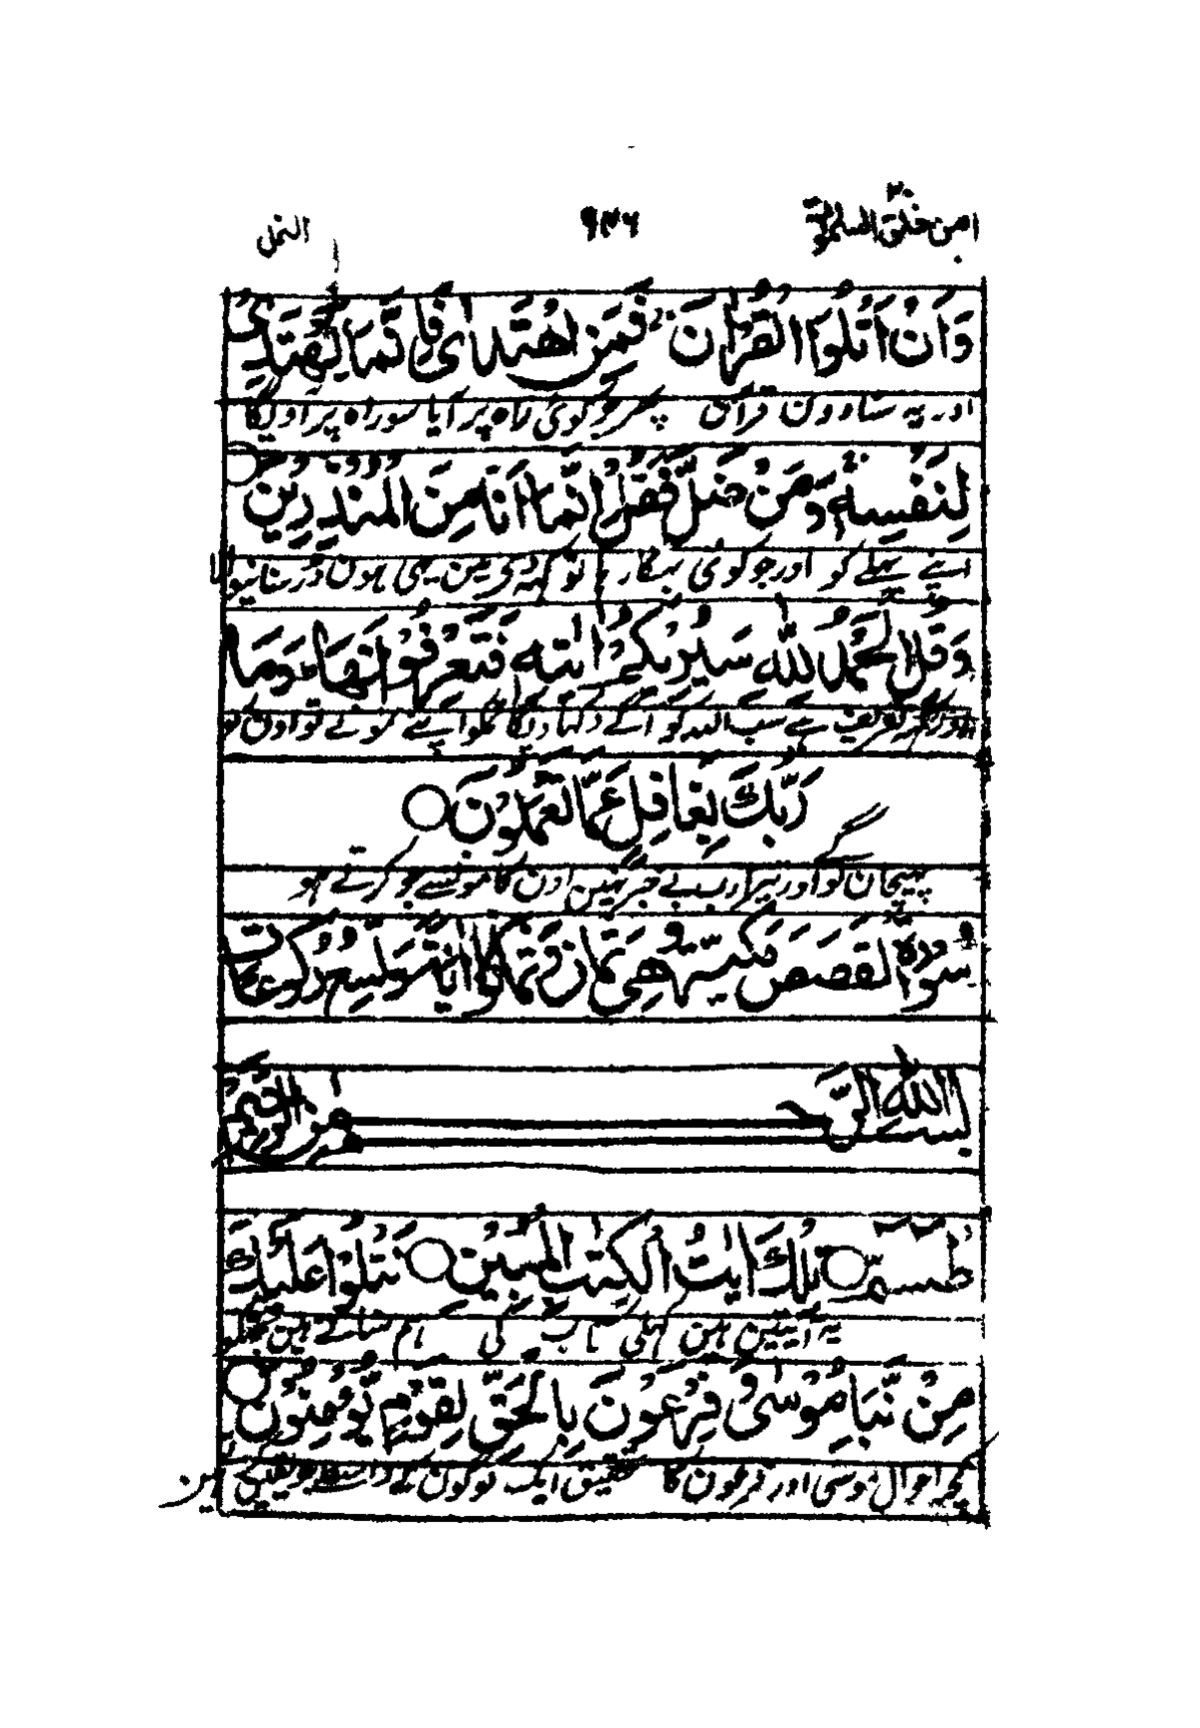 امن خلق السموٰت ۲۰ ۹۳۶ النمل
وَاَنْ اَتْلُوَا الْقُرْاٰنَ فَمَنِ اهْتَدٰى فَاِنَّمَا يَهْتَدِىْ
اور یہ سناوون قرآن پھر جو کوئی راہ پر آیا سو راہ پر آویگا
لِنَفْسِهٖ وَمَنْ ضَلَّ فَقُلْ اِنَّمَا اَنَا مِنَ الْمُنْذِرِيْنَ
اپنے بھلے کو اور جو کوئی بہکا رہا تو کہہ دی مین یہی ہون ڈر سنانیوالا
وَقُلِ الْحَمْدُ لِلّٰهِ سَيُرِيْكُمْ اٰيٰتِهٖ فَتَعْرِفُوْنَهَا وَمَا
اور کہہ تعریف ہے سب اللہ کو آگے دکہا دیگا تمکو اپنے نمونے تو اون کو
رَبُّكَ بِغَافِلٍ عَمَّا تَعْمَلُوْنَ
پہچان لوگے اور تیرا رب بے خبر نہین اون کامونسے جو کرتے ہو
سُوْرَةُ الْقَصَصِ مَكِّيَّةٌ وَّهِىَ ثَمَانٌ وَّثَمَانُوْنَ اٰيَةً وَّتِسْعُ رُكُوْعَاتٍ
بسم الله الرحمن الرحيم
طٰسٓمّٓ تِلْكَ اٰيٰتُ الْكِتٰبِ الْمُبِيْنِ نَتْلُوْا عَلَيْكَ
یہ آیتین ہین کھلی کتاب کی ہم سناتے ہین تجکو
مِنْ نَّبَاِ مُوْسٰى وَفِرْعَوْنَ بِالْحَقِّ لِقَوْمٍ يُّؤْمِنُوْنَ
کچھ احوال موسی اور فرعون کا تحقیق ایک لوگون کے واسطے جو یقین کرتے ہین